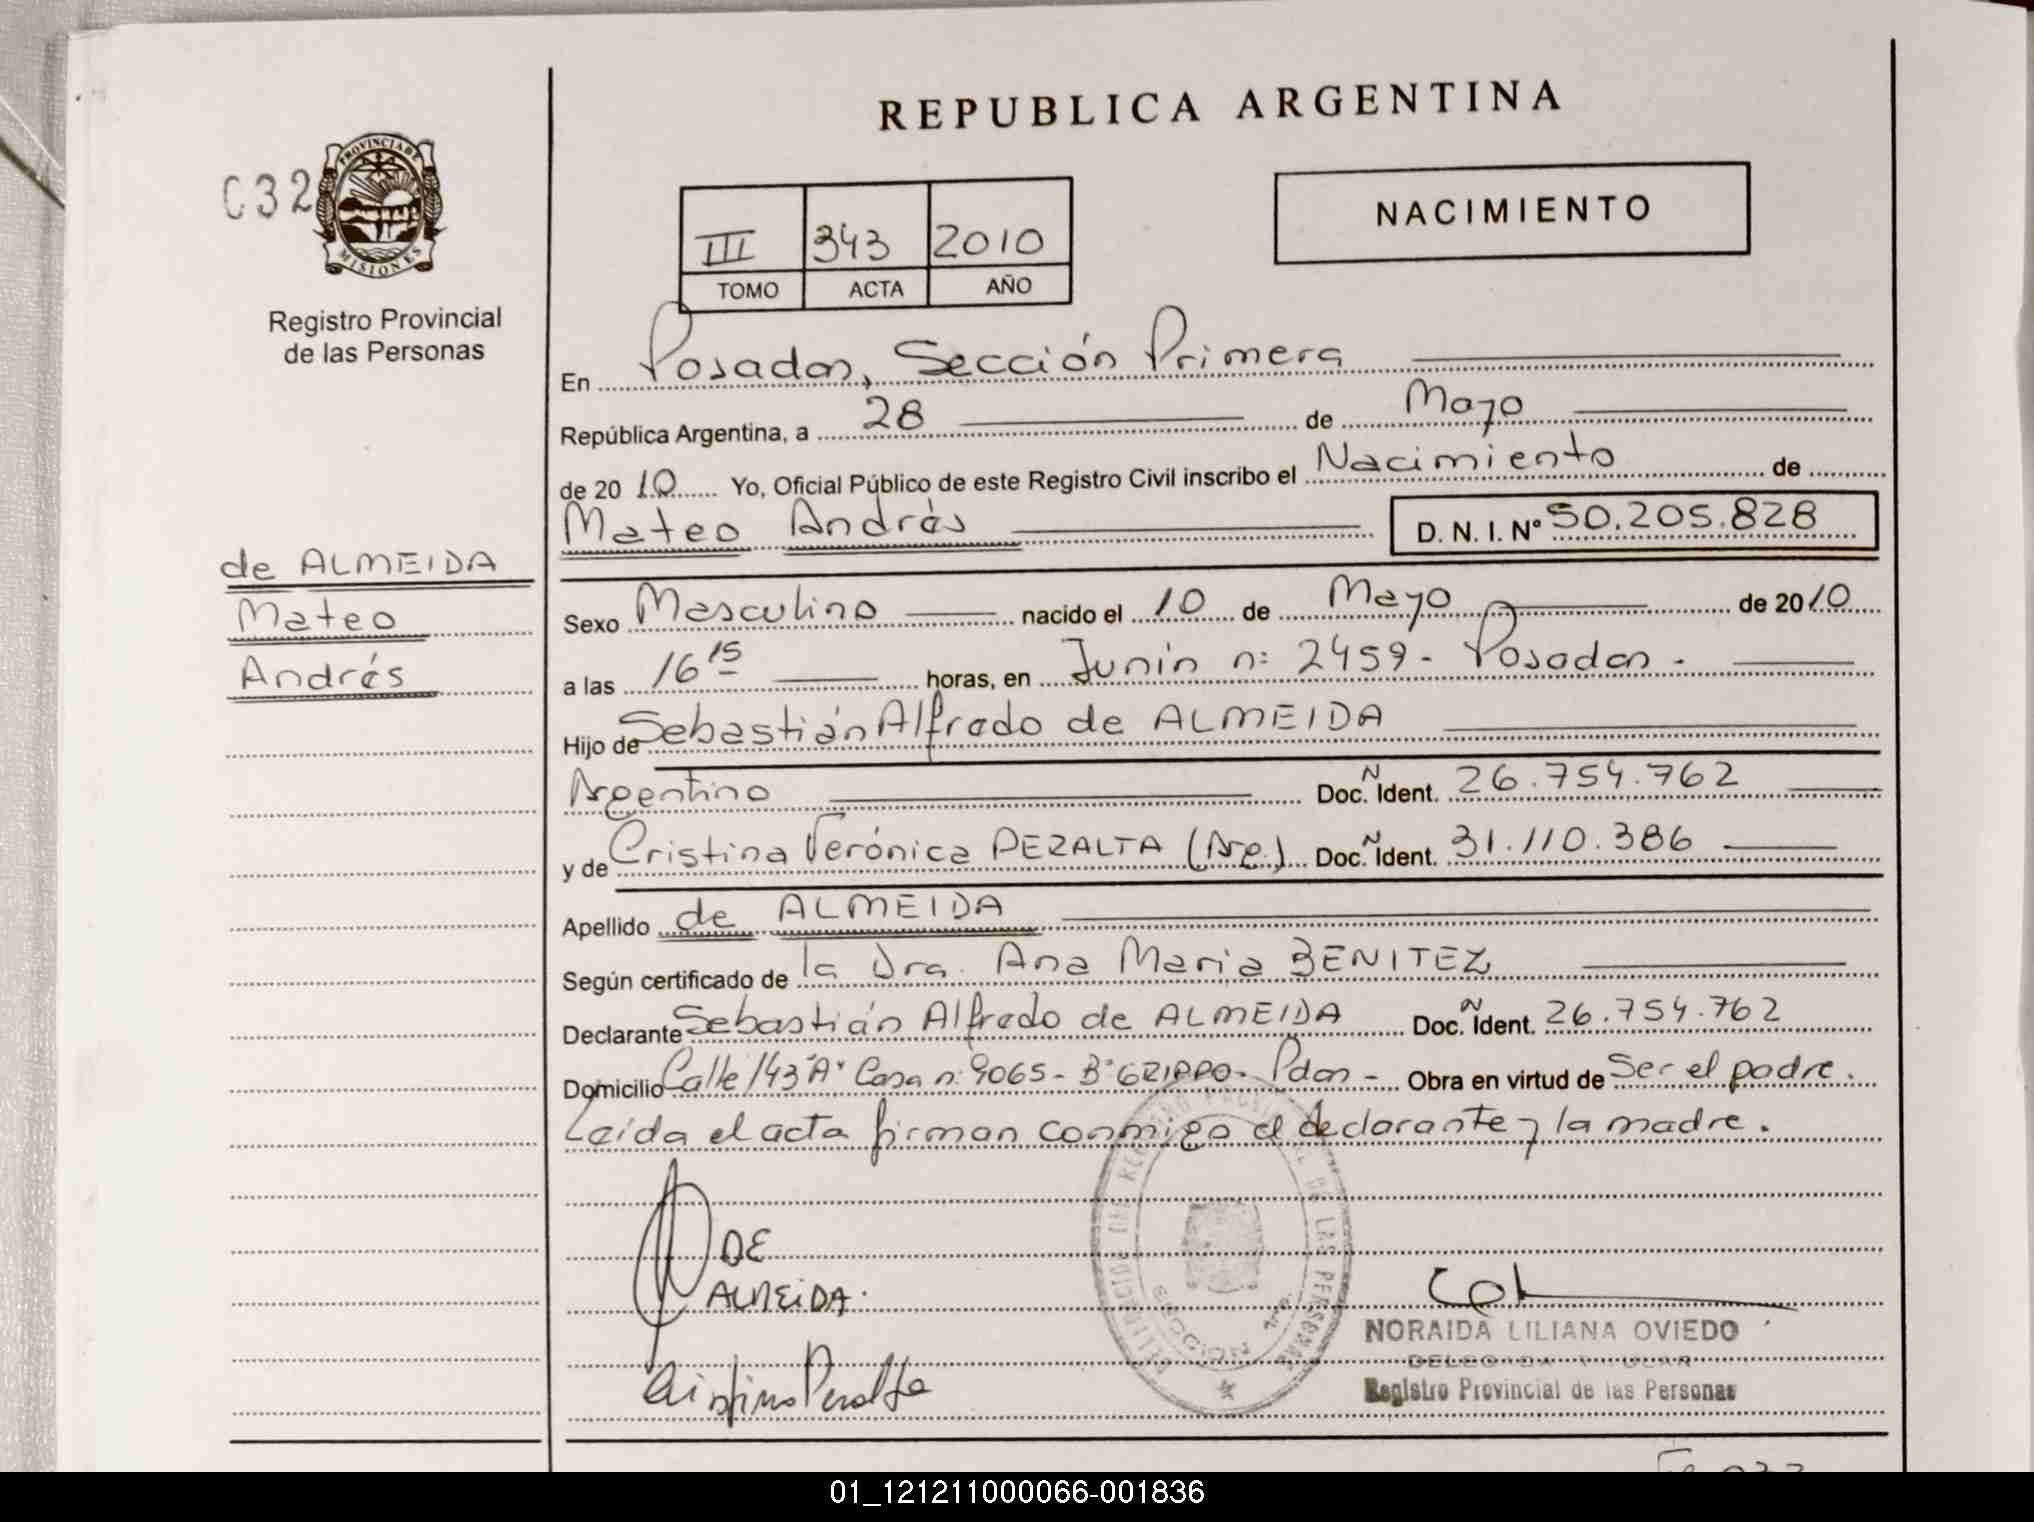 REPUBLICA ARGENTINA
C32
PROVINCIA DE
MISIONES
Registro Provincial
de las Personas
NACIMIENTO
III 343 2010
TOMO ACTA AÑO
En Posadas, Sección Primera
República Argentina, a 28 de Mayo
de 2010 Yo, Oficial Público de este Registro Civil inscribo el Nacimiento de
Mateo Andrés D. N. I. Nº 50.205.828
de ALMEIDA
Mateo
Andrés
Sexo Masculino nacido el 10 de Mayo de 2010
a las 16 15 horas, en Junín nº 2459 - Posadas -
Hijo de Sebastián Alfredo de ALMEIDA
Argentino Doc. Ñ Ident. 26.754.762
y de Cristina Verónica PERALTA (Arg.) Doc. Ñ Ident. 31.110.386
Apellido de ALMEIDA
Según certificado de la Dra. Ana Maria BENITEZ
Declarante Sebastián Alfredo de ALMEIDA Doc. Ñ Ident. 26.754.762
Domicilio Calle 143 "A" Casa nº 9065 - Bº GRIPPO - Pdas - Obra en virtud de Ser el padre.
Leída el acta firman conmigo el declarante y la madre.
DE
ALMEIDA.
Cristina Peralta
DELEGACION DEL REGISTRO PROVINCIAL DE LAS PERSONAS
SECCION 1ra.
NORAIDA LILIANA OVIEDO
DELEGADA TITULAR
Registro Provincial de las Personas
01_121211000066-001836